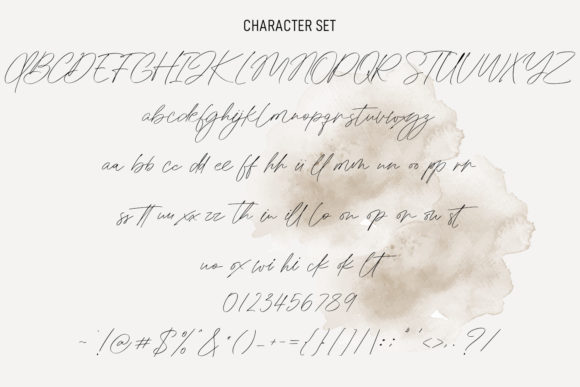 CHARACTER SET
ABCDEFGHIJKLMNOPQRSTUVWXYZ
abcdefghijklmnopqrstuvwxyz
aa bb cc dd ee ff hh ii ll mm nn oo pp rr
ss tt uu xx zz th in ill lo on op or ou st
uo ox wi hi ck ok lt
0123456789
~`!@#$%^&*()_+-={}[]/|\:;"'<>,.?/